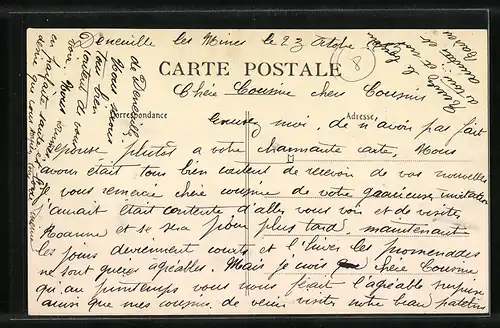 Deneuille les Mines le 23 octobre
CARTE POSTALE
8
Chère Cousine cher Cousins
Correspondance
Adresse,
Excusez moi, de n avoir pas fait
reponse plutôt a votre charmante carte, Nous
avons était tous bien content de recevoir de vos nouvelles
Je vous remercie chère cousine de votre gracieuse invitation
j'aurait était contente d'aller vous voir et de visiter
Roanne et se sera pour plus tard. maintenant
les jours deviennent courts et l'hiver les promenades
ne sont guères agréables. Mais je crois que chère Cousine
qu'au printemps vous nous ferait l'agréable surprise
ainsi que mes cousins de venir visiter notre beau patelin
de Deneuille.
Nous sommes
tous bien
content de vous
voir. Nous
en parfaite santé et je
désire que vous soyez de même